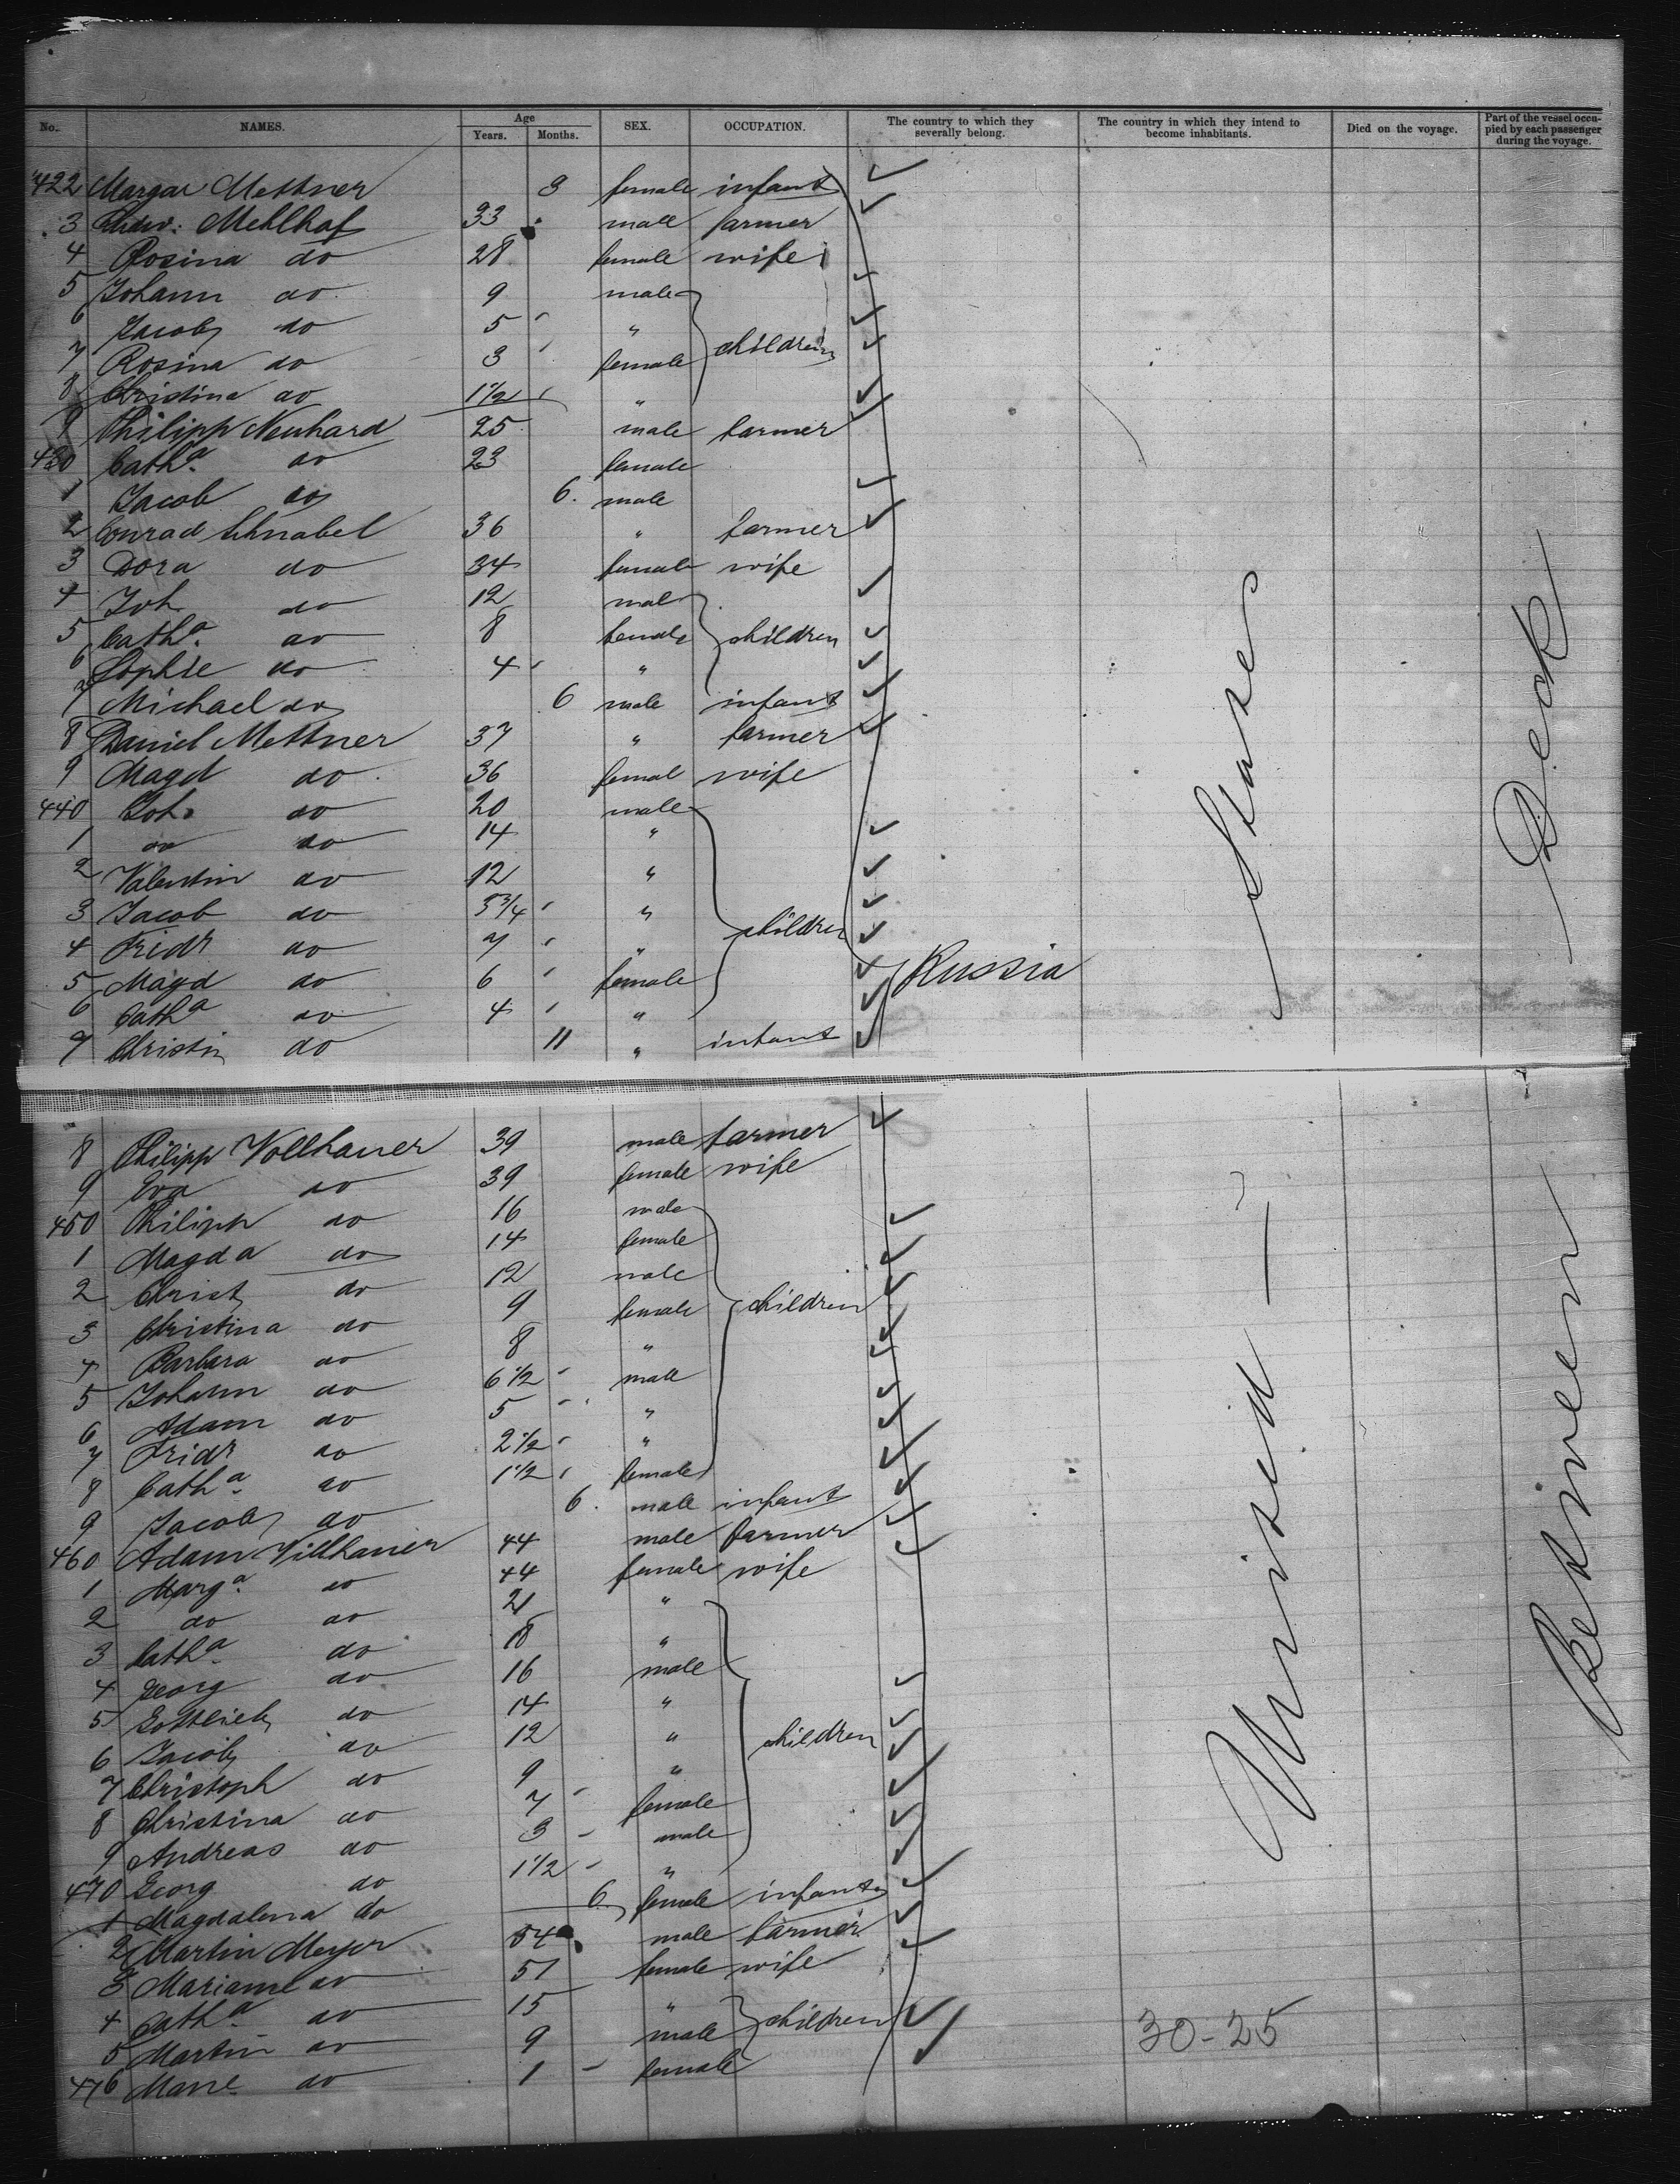 No. NAMES. Age Years. Months. SEX. OCCUPATION. The country to which they severally belong. The country in which they intend to become inhabitants. Died on the voyage. Part of the vessel occupied by each passenger during the voyage.
422 Margar Mettner 3 female infant
3 Ludw: Mehlhaf 33 male farmer
4 Rosina do 28 female wife
5 Johann do 9 male
6 Jacob do 5 "
7 Rosina do 3 female children
8 Christina do 1 1/2 "
9 Philipp Neuhard 25 male farmer
430 Catha. do 23 female
1 Jacob do 6. male
2 Conrad Schnabel 36 " farmer
3 Dora do 34 female wife
4 Joh. do 12 male
5 Catha. do 8 female children
6 Sophie do 4 "
7 Michael do 6 male infant
8 Daniel Mettner 37 " farmer
9 Magd do 36 femal wife
440 Joh. do 20 male
1 do do 14 "
2 Valentin do 12 "
3 Jacob do 5 3/4 " children
4 Fridr do 7 "
5 Magd do 6 female Russia
6 Catha do 4 "
7 Christin do 11 " infant
8 Philipp Vollhauer 39 male farmer
9 Eva do 39 female wife
450 Philipp do 16 male
1 Magda do 14 female
2 Christ do 12 male
3 Christina do 9 female children
4 Barbara do 8 "
5 Johann do 6 1/2 male
6 Adam do 5 "
7 Fridr do 2 1/2 "
8 Catha. do 1 1/2 female
9 Jacob do 6. male infant
460 Adam Villhauer 44 male farmer
1 Marga. do 44 female wife
2 do do 21 "
3 Catha. do 18 "
4 Georg do 16 male
5 Gottlieb do 14 "
6 Jacob do 12 " children
7 Christoph do 9 "
8 Christina do 7 female
9 Andreas do 3 male
470 Georg do 1 1/2 "
1 Magdalena do 6 female infant
2 Martin Meyer 54 male farmer
3 Mariane do 51 female wife
4 Catha do 15 " children
5 Martin do 9 male
476 Marie do 1 female
United States
Between Deck
30-25